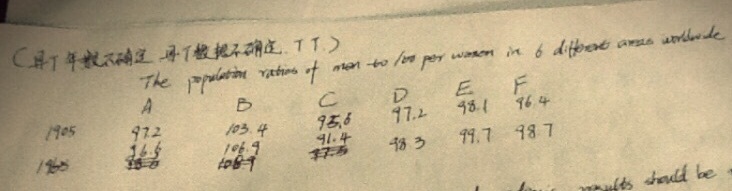 (具T年数不确定 具T数据不确定. TT.)
The population ratios of men to 100 per women in 6 different areas worldwide
A B C D E F
1905 97.2 103.4 95.6 97.2 98.1 96.4
96.6 106.9 91.4 98.3 99.7 98.7
results should be